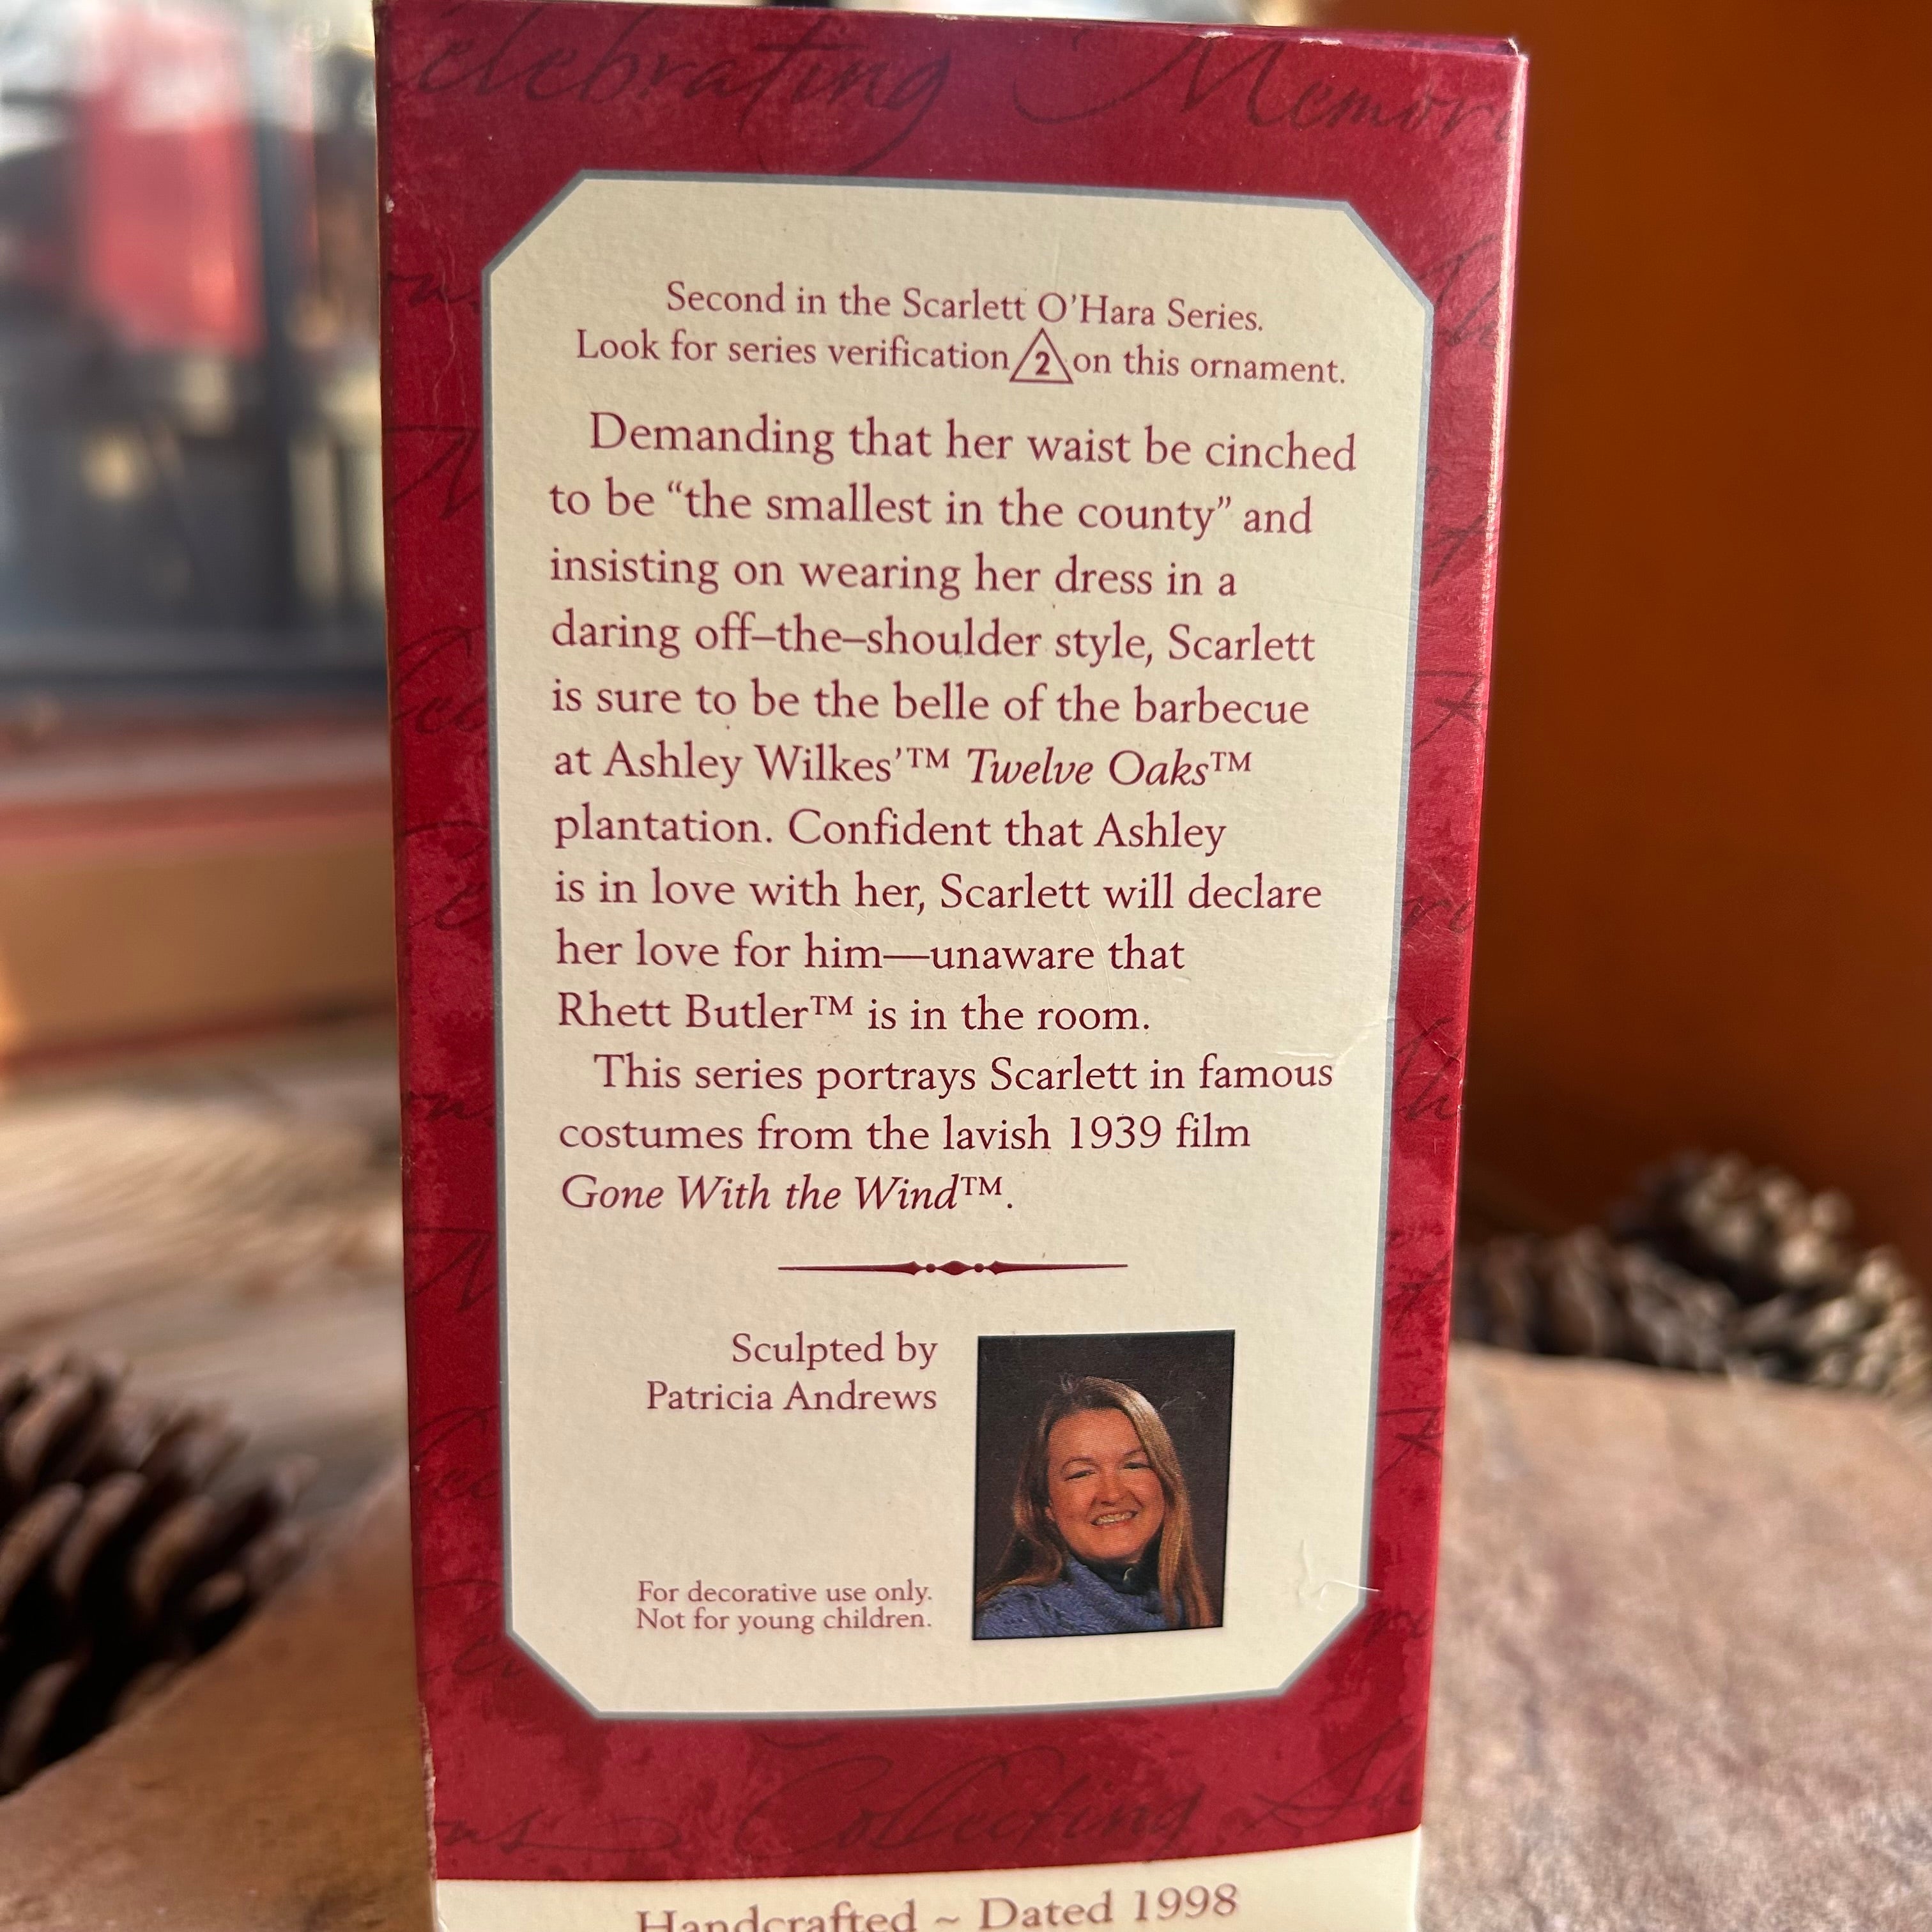 Celebrating Memori
Second in the Scarlett O'Hara Series.
Look for series verification 2 on this ornament.
Demanding that her waist be cinched
to be “the smallest in the county” and
insisting on wearing her dress in a
daring off–the–shoulder style, Scarlett
is sure to be the belle of the barbecue
at Ashley Wilkes'™ Twelve Oaks™
plantation. Confident that Ashley
is in love with her, Scarlett will declare
her love for him—unaware that
Rhett Butler™ is in the room.
This series portrays Scarlett in famous
costumes from the lavish 1939 film
Gone With the Wind™.
Sculpted by
Patricia Andrews
For decorative use only.
Not for young children.
Collecting
Handcrafted ~ Dated 1998